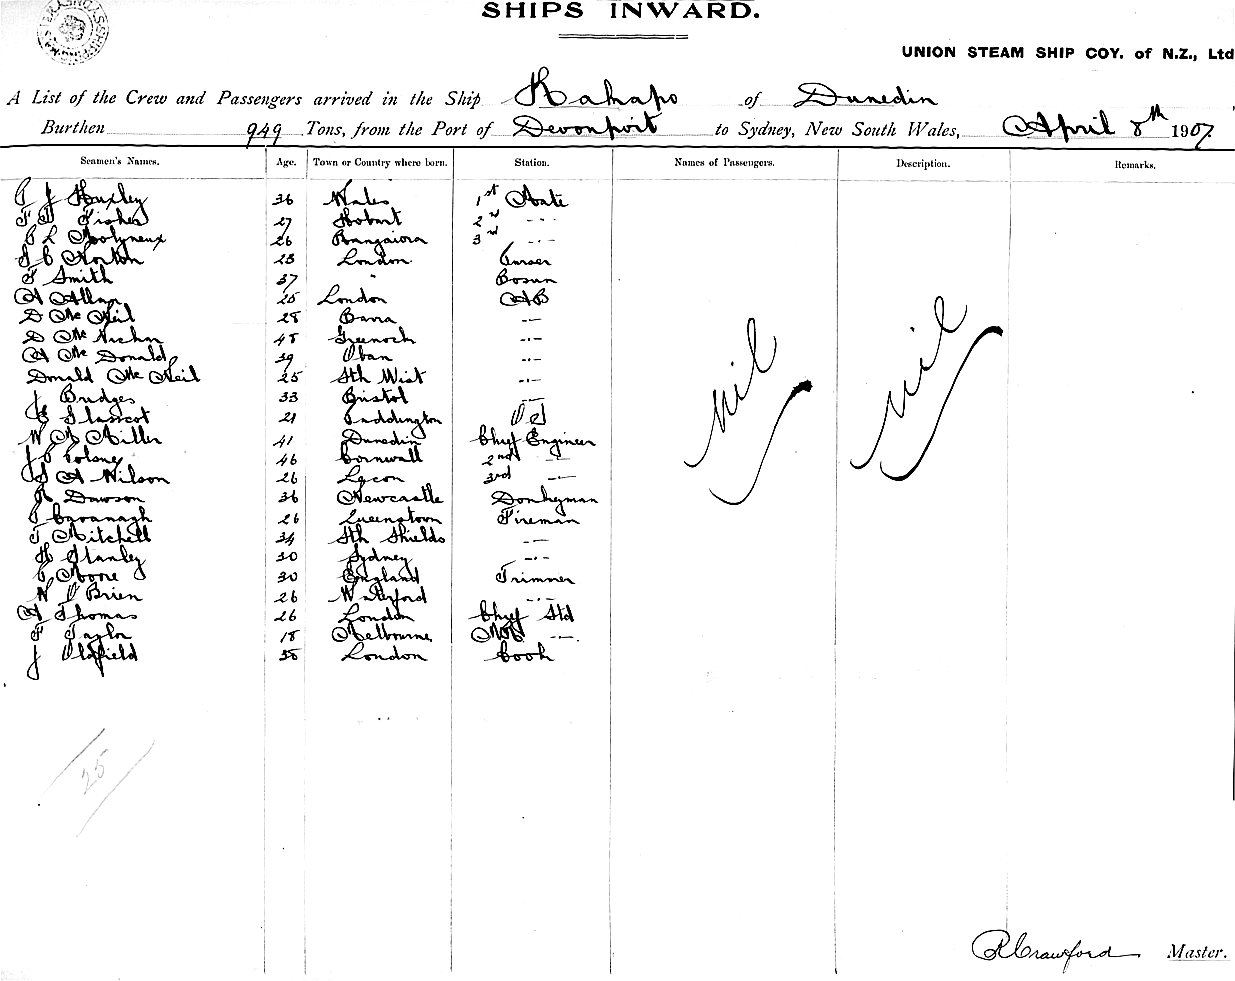 SHIPS INWARD.
UNION STEAM SHIP COY. of N.Z., Ltd
A List of the Crew and Passengers arrived in the Ship Kakapo of Dunedin
Burthen 949 Tons, from the Port of Devonport to Sydney, New South Wales, April 8th 1907
Seamen's Names. Age. Town or Country where born. Station. Names of Passengers. Description. Remarks.
J Huxley 36 Wales 1st Mate
Fisher 27 Hobart 2nd -·-
L Molyneux 26 Rangiora 3rd -·-
C Norton 23 London Purser
Smith 37 " Bosun
A Allan 25 London AB
D McNeil 28 Barra -·-
D Mc 48 Greenock -·-
A McDonald 39 Oban -·-
Donald McNeil 25 Sth Uist -·-
J Bridges 33 Bristol -·-
21 Paddington OS
W A Miller 41 Dunedin Chief Engineer
46 Cornwall 2nd -·-
A Wilson 26 3rd -·-
R Dawson 36 Newcastle Donkyman
Cavanagh 26 Queenstown Fireman
J Mitchell 34 Sth Shields -·-
H Stanley 30 Sydney -·-
Moore 30 England Trimmer
W O Brien 26 Waterford -·-
A Thomas 26 London Chief Std
F Taylor 18 Melbourne -·-
J Oldfield 38 London Cook
nil nil
25
R Crawford Master.